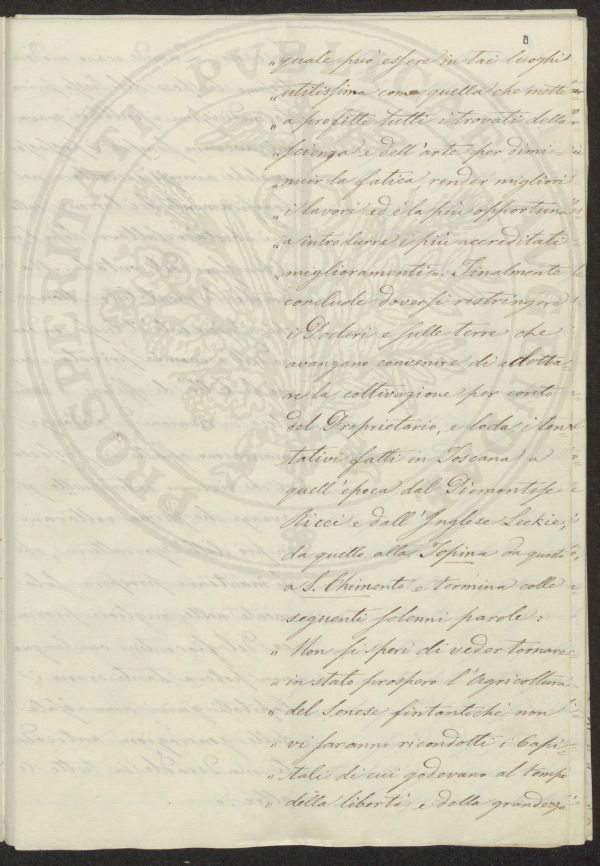 8
„ quale può essere in tai luoghi
„ utilissima come quella che mette
„ a profitto tutti i trovati della
„ scienza e dell'arte per dimi=
„ nuir la fatica, render migliori
„ i lavori ed è la più opportuna
„ a introdurre i più accreditati
„ miglioramenti„. Finalmente
conclude doversi ristringere
i Poderi e sulle terre che
avanzano convenire di adotta=
re la coltivazione per conto
del Proprietario, e loda i ten=
tativi fatti in Toscana a
quell'epoca dal Piemontese
Ricci e dall'Inglese Leckie,
da quello alla Topina da questo
a S. Chimento e termina colle
seguenti solenni parole:
„ Non si speri di veder tornare
„ in stato prospero l'Agricoltura
„ del Senese fintantochè non
„ vi saranno ricondotti i Capi=
„ tali di cui godevano al tempo
„ della libertà e della grandezza
PROSPERITATI PUBLICAE